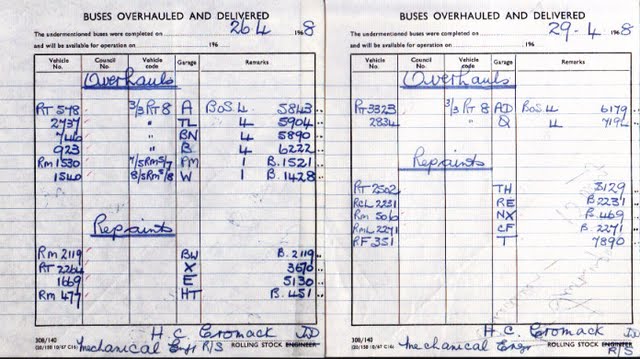 BUSES OVERHAULED AND DELIVERED
The undermentioned buses were completed on 26 4 1968
and will be available for operation on 196
Vehicle No. Council No. Vehicle code Garage Remarks
Overhauls
RT 578 3/3 RT 8 A BOS. 4 5843
2737 " TL 4 5904
746 " BN 4 5890
923 " B 4 6222
RM 1530 7/5RM5/7 PM 1 B.1521
1540 8/5RM5/8 W 1 B.1428
Repaints
RM 2119 BW B.2119
RT 2264 X 3670
1669 E 5130
RM 477 HT B.451
H.C. Cromack
308/140
Mechanical Engr R/S ROLLING STOCK ENGINEER
BUSES OVERHAULED AND DELIVERED
The undermentioned buses were completed on 29-4 1968
and will be available for operation on 196
Vehicle No. Council No. Vehicle code Garage Remarks
Overhauls
RT3323 3/3 RT 8 AD BOS.4 6179
2834 " Q 4 7194
Repaints
RT 2502 TH 3129
RCL 2231 RE B.2231
RM 506 NX B.469
RML 2271 CF B.2271
RF 351 T 7890
H.C. Cromack
308/140
Mechanical Engr R/S ROLLING STOCK ENGINEER